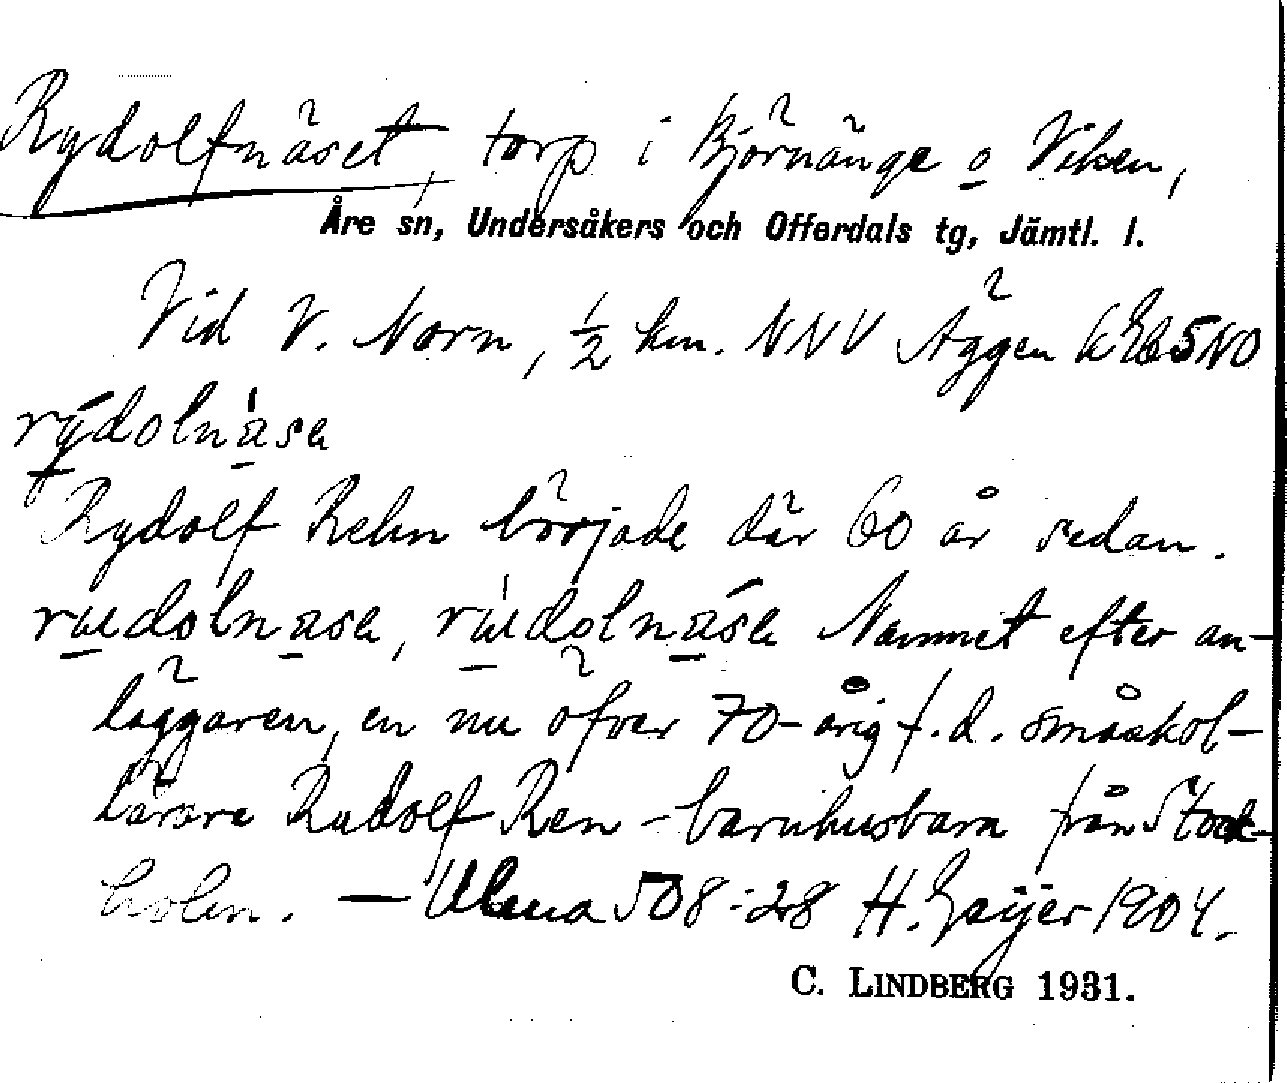 Rydolfnäset, torp i Björnänge o Viken,
Åre sn, Undersåkers och Offerdals tg, Jämtl. l.
Vid V. Norn, ½ km. NNV Äggen 5NO
rydolnäsa
Rydolf Rehn började där 60 år sedan.
rudolnäsa, rudolnäsa Namnet efter an-
läggaren, en nu öfver 70-årig f.d. småskol-
lärare Rudolf Ren - barnhusbarn från Stock-
holm. — Ulma 508:28 H. Geijer 1904.
C. LINDBERG 1931.